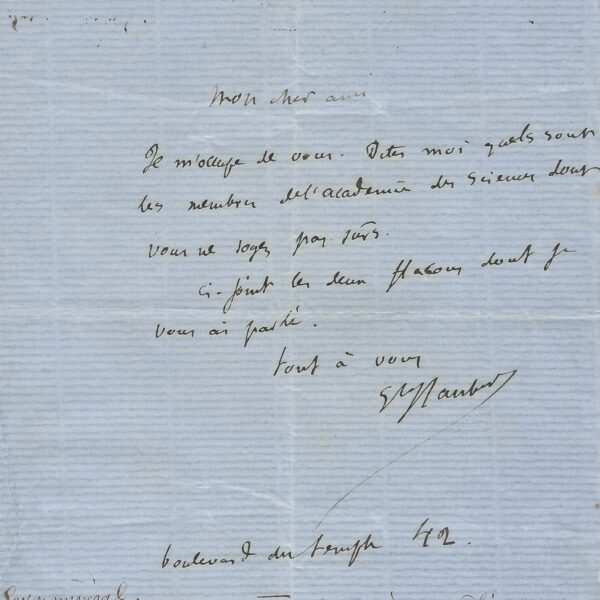 Mon cher ami
Je m'occupe de vous. Dites moi quels sont
les membres de l'académie des Sciences dont
vous ne soyez pas sûrs.
ci-joint les deux flacons dont je
vous ai parlé.
tout à vous
Gve Flaubert
boulevard du temple 42.